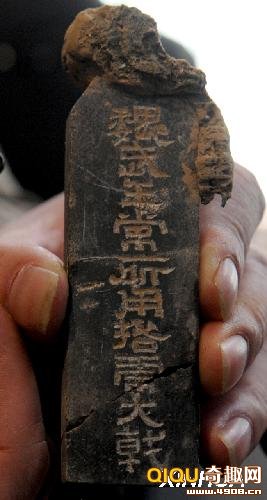 魏武王常所用挌虎大戟
XINHUA
QIQU奇趣网
www.4908.cn